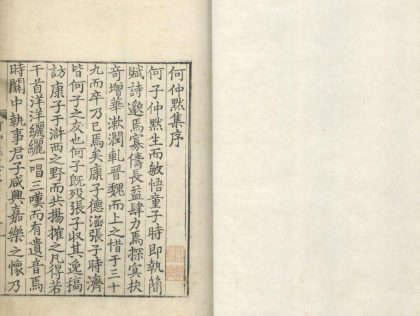 何仲默集序
何子仲默生而敏悟童子時即執簡
賦詩邈焉寡儔長益肆力焉探寘抉
奇增華漱潤軋晉魏而上之惜于三十
九而卒乃已焉矣康子德涵張子時濟
皆何子之友也何子既殁張子収其逸稿
訪康子于滸西之野而共揚搉之凡得若
干首洋洋纚纚一唱三嘆而有遺音焉
時關中執事君子咸興嘉樂之懷乃